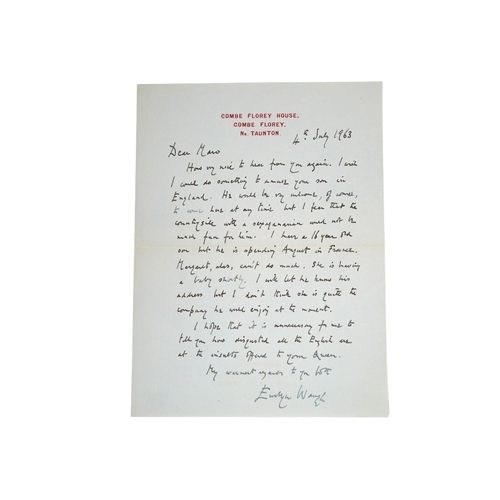 COMBE FLOREY HOUSE,
COMBE FLOREY,
Nr. TAUNTON.
4th July 1963
Dear Maro
How very nice to hear from you again. I wish
I could do something to amuse your son in
England. He would be very welcome, of course,
to come here at any time but I fear that the
countryside with a sexagenarian would not be
much fun for him. I have a 16 year old
son but he is spending August in France.
Margaret, alas, can't do much. She is having
a baby shortly. I will let her know his
address but I don't think she is quite the
company he would enjoy at the moment.
I hope that it is unnecessary for me to
tell you how disgusted all the English are
at the insults offered to your Queen.
My warmest regards to you both
Evelyn Waugh